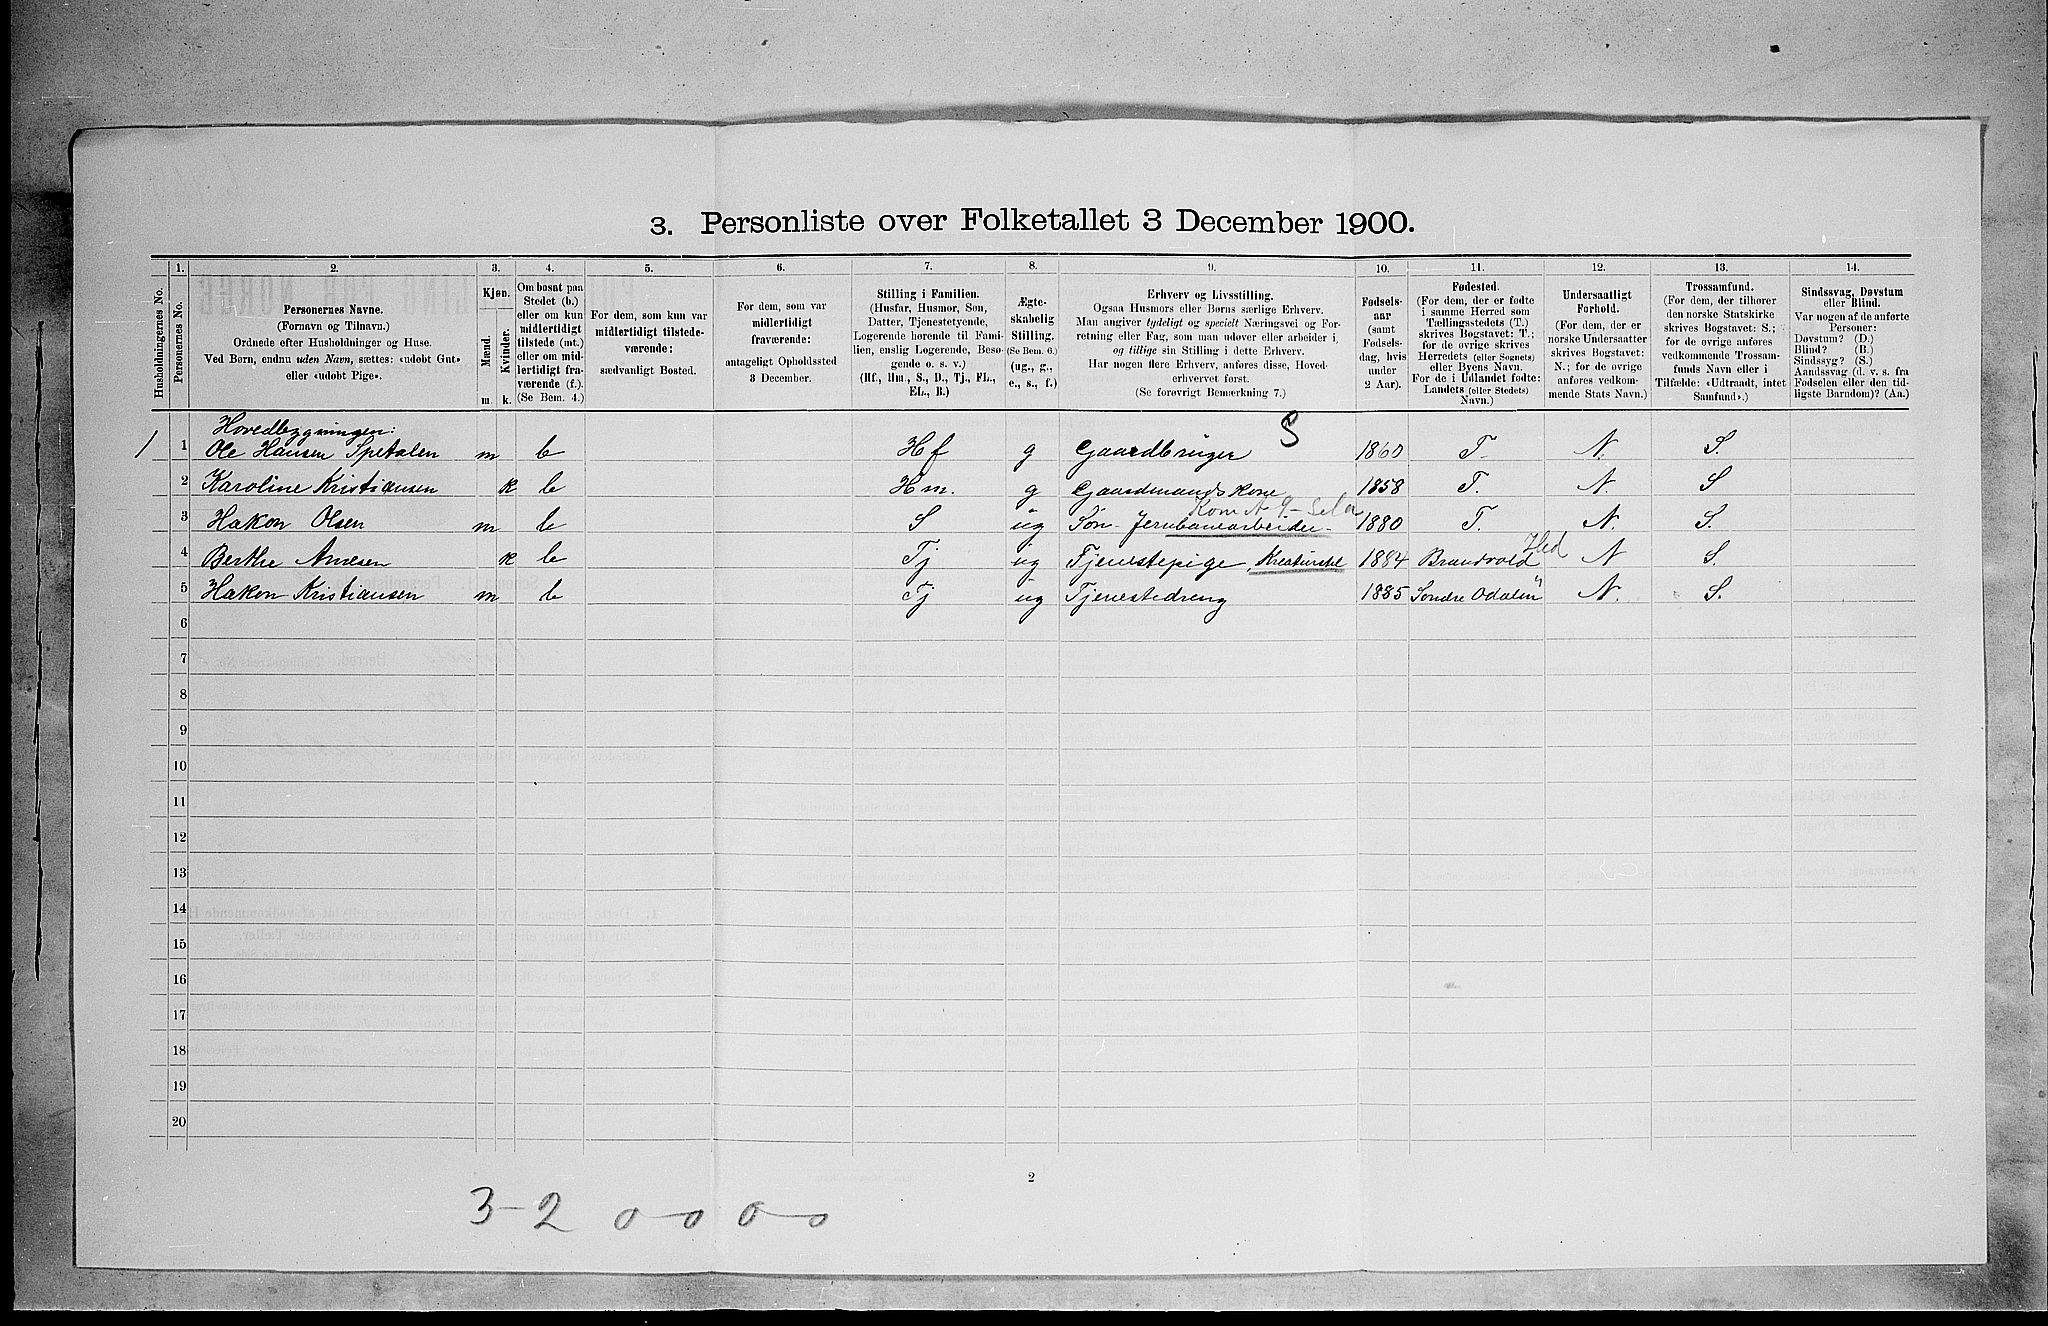 3. Personliste over Folketallet 3 December 1900.
Husholdningernes No.
1.
Personernes No.
2.
Personernes Navne.
(Fornavn og Tilnavn.)
Ordnede efter Husholdninger og Huse.
Ved Børn, endnu uden Navn, sættes: «udøbt Gut»
eller «udøbt Pige».
3.
Kjøn.
Mænd.
Kvinder.
m. k.
4.
Om bosat paa
Stedet (b.)
eller om kun
midlertidigt
tilstede (mt.)
eller om mid-
lertidigt fra-
værende (f.).
(Se Bem. 4.)
5.
For dem, som kun var
midlertidigt tilstede-
værende:
sædvanligt Bosted.
6.
For dem, som var
midlertidigt
fraværende:
antageligt Opholdssted
3 December.
7.
Stilling i Familien.
(Husfar, Husmor, Søn,
Datter, Tjenestetyende,
Logerende hørende til Fami-
lien, enslig Logerende, Besø-
gende o. s. v.)
(Hf., Hm., S., D., Tj., FL.,
EL., B.)
8.
Ægte-
skabelig
Stilling.
(Se Bem. 6.)
(ug., g.,
e., s., f.)
9.
Erhverv og Livsstilling.
Ogsaa Husmors eller Børns særlige Erhverv.
Man angiver tydeligt og specielt Næringsvei og For-
retning eller Fag, som man udøver eller arbeider i,
og tillige sin Stilling i dette Erhverv.
Har nogen flere Erhverv, anføres disse, Hoved-
erhvervet først.
(Se forøvrigt Bemærkning 7.)
10.
Fødsels-
aar
(samt
Fødsels-
dag, hvis
under
2 Aar).
11.
Fødested.
(For dem, der er fødte
i samme Herred som
Tællingsstedets (T.)
skrives Bogstavet: T.;
for de øvrige skrives
Herredets (eller Sognets)
eller Byens Navn.
For de i Udlandet fødte:
Landets (eller Stedets)
Navn.)
12.
Undersaatligt
Forhold.
(For dem, der er
norske Undersaatter
skrives Bogstavet:
N.; for de øvrige
anføres vedkom-
mende Stats Navn.)
13.
Trossamfund.
(For dem, der tilhører
den norske Statskirke
skrives Bogstavet: S.;
for de øvrige anføres
vedkommende Trossam-
funds Navn eller i
Tilfælde: «Udtraadt, intet
Samfund».)
14.
Sindssvag, Døvstum
eller Blind.
Var nogen af de anførte
Personer:
Døvstum? (D.)
Blind? (B.)
Sindssyg? (S.)
Aandssvag (d. v. s. fra
Fødselen eller den tid-
ligste Barndom)? (Aa.)
Hovedbygningen:
S
1 1 Ole Hansen Spetalen m b Hf g Gaardbruger 1860 T. N. S.
2 Karoline Kristiansen k b Hm. g Gaardmandskone 1858 T. N. S
3 Hakon Olsen m b S ug Søn - Jernbanearbeider - 1880 T. N. S.
Hed
4 Berthe Arnesen k b Tj ug Tjenestepige, Kreaturstel 1884 Brandvold N S.
5 Hakon Kristiansen m b Tj ug Tjenestedreng 1885 Søndre Odalen " N. S.
6
7
8
9
10
11
12
13
14
15
16
17
18
19
20
2
3-2 0-0 0-0